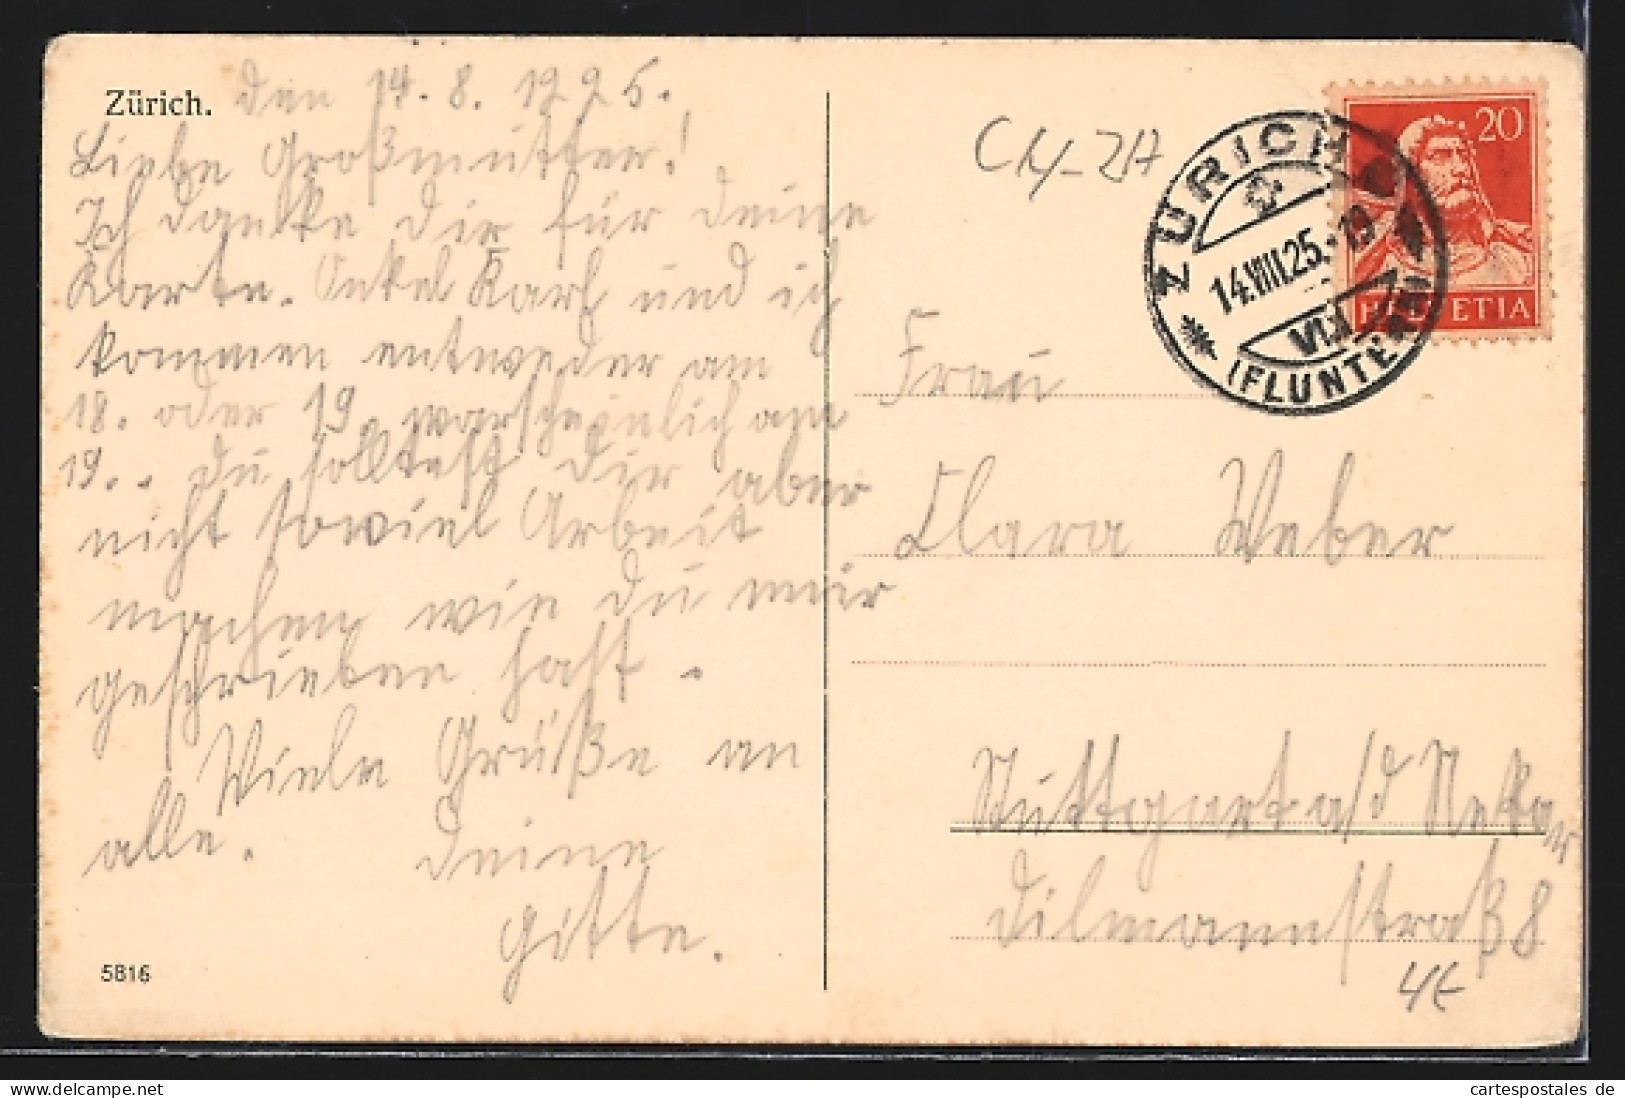 Zürich. den 14. 8. 1925.
Liebe Großmutter!
Ich danke dir für deine
Karte. Onkel Karl und ich
kommen entweder am
18. oder 19. warscheinlich am
19.. du solltest dir aber
nicht soviel Arbeit
machen wie du mir
geschrieben hast.
Viele Grüße an
alle. deine
Gitte.
5816
CH-ZH
ZÜRICH
14.VIII.25.-19
VII
(FLUNTERN)
20
HELVETIA
Frau
Clara Weber
Stuttgart a/d Nekar
Dilmannstraß 8
4E
>> www.delcampe.net
cartespostales de